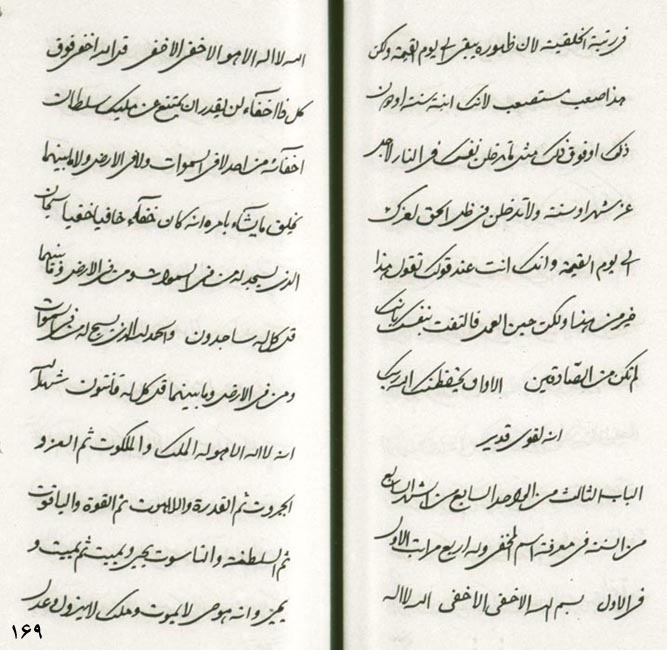 فی رتبة الخلقیة لان ظهوره یبقی الی یوم القیمة ولکن
هذا صعب مستصعب لانک انت سنة او دون
ذلک او فوق ذلک مثل ما تدخلن نفسک فی النار لاجل
عز شهر او سنة ولا تدخلن فی ظل الحق لعزک
الی یوم القیمة وانک انت عند قولک تقول هذا
خیر من هذا ولکن حین العمل فالتفت بنفسک بانک
لم تکن من الصادقین الا وان یحفظنک الله ربک
انه لقوی قدیر
الباب الثالث من الواحد السابع من الشهر السابع
من السنة فی معرفة اسم الخفی وله اربع مراتب الاول
فی الاول بسم الله الاخفی الاخفی الله لا اله
الله لا اله الا هو الاخفی الاخفی قل الله اخفی فوق
کل ذا اخفآء لن یقدر ان یمتنع عن ملیک سلطان
اخفآئه من احد لا فی السموات ولا فی الارض ولا ما بینهما
یخلق ما یشآء بامره انه کان خفآء خافیا خفیا سبحان
الذی یسجد له من فی السموات ومن فی الارض وما بینهما
قل کل له ساجدون والحمد لله الذی یسبح له من فی السموات
ومن فی الارض وما بینهما قل کل له قانتون شهد الله
انه لا اله الا هو له الملک والملکوت ثم العز و
الجبروت ثم القدرة واللاهوت ثم القوة والیاقوت
ثم السلطنة والناسوت یحیی ویمیت ثم یمیت و
یحیی وانه هو حی لا یموت وملک لا یزول وعدل
۱۶۹